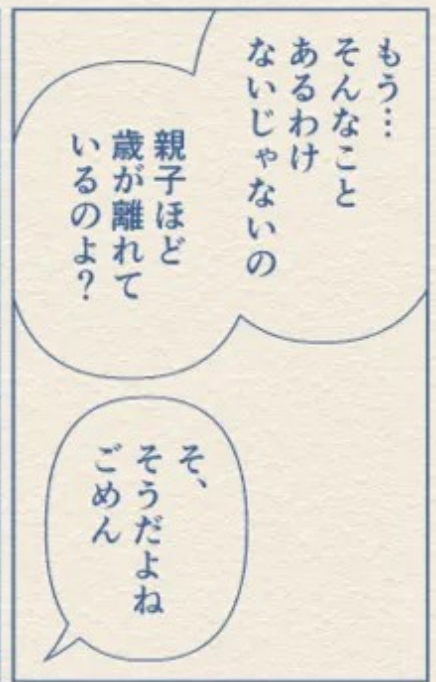 もう…
そんなこと
あるわけ
ないじゃないの
親子ほど
歳が離れて
いるのよ？
そ、
そうだよね
ごめん